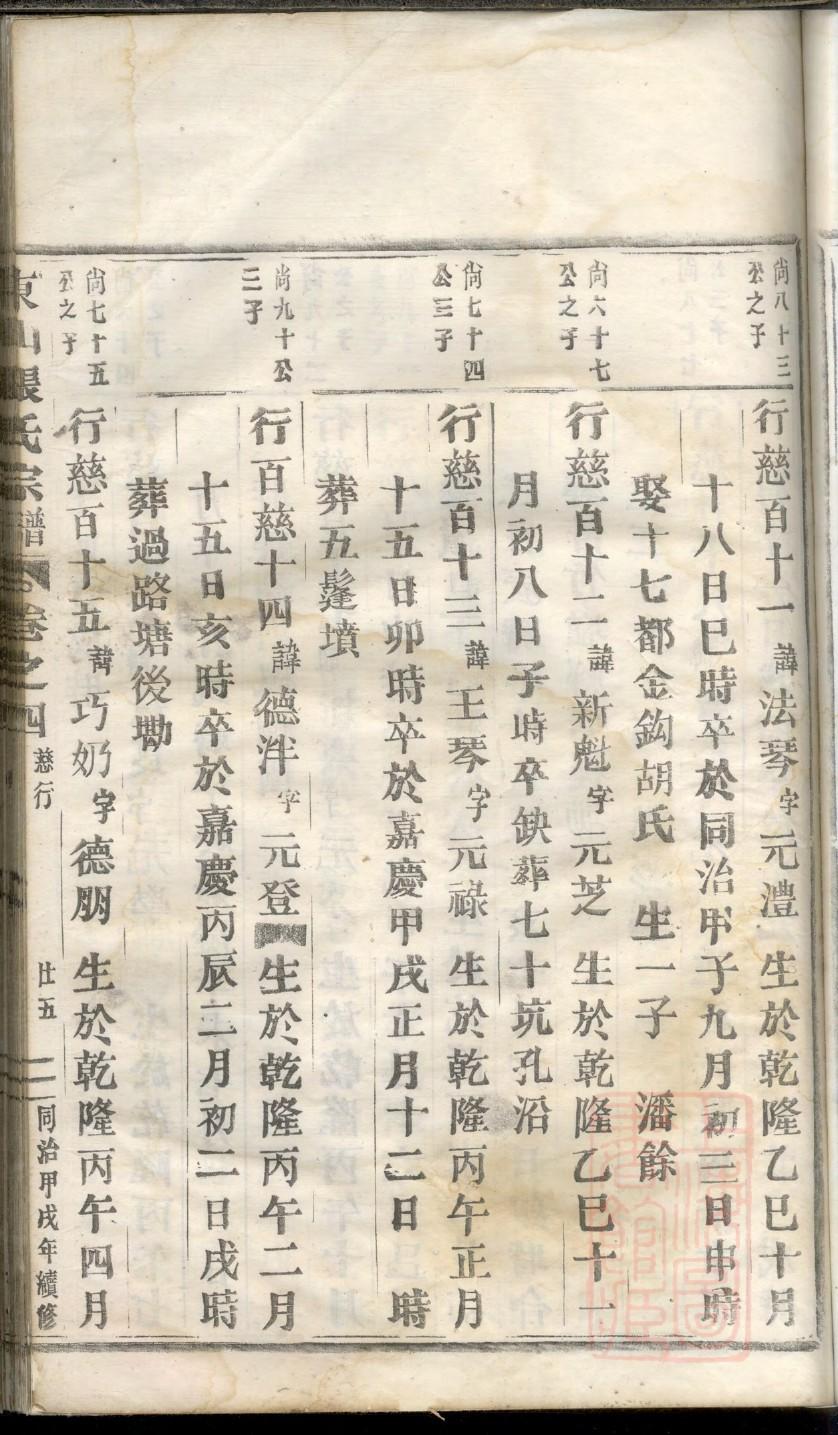 尙八十三
公之子
行慈百十一 諱法琴字元澧 生於乾隆乙巳十月
十八日巳時卒於同治甲子九月初三日申時
娶十七都金鈎胡氏 生一子 潘餘
尙六十七
公之子
行慈百十二 諱新魁字元芝 生於乾隆乙巳十一
月初八日子時卒缺葬七十坑孔沿
尙七十四
公三子
行慈百十三 諱王琴字元祿 生於乾隆丙午正月
十五日卯時卒於嘉慶甲戌正月十二日 時
葬五髼墳
尙九十公
三子
行百慈十四 諱德泮字元登 生於乾隆丙午二月
十五日亥時卒於嘉慶丙辰二月初二日戌時
葬過路塘後墈
尙七十五
公之子
行慈百十五 諱巧奶字德朋 生於乾隆丙午四月
東山張氏宗譜 卷之四 慈行 廿五 同治甲戌年續修